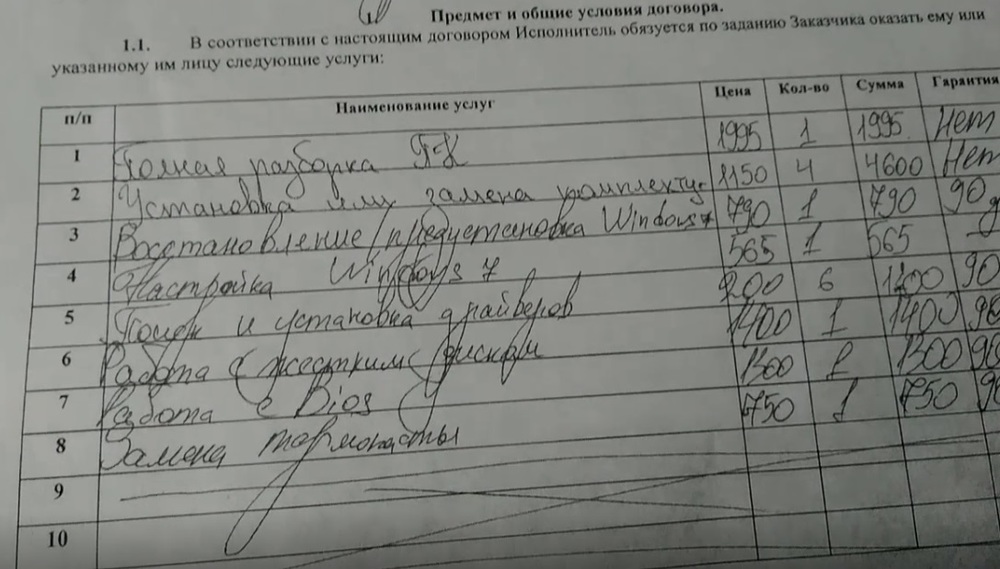 Предмет и общие условия договора.
1.1. В соответствии с настоящим договором Исполнитель обязуется по заданию Заказчика оказать ему или
указанному им лицу следующие услуги:
п/п Наименование услуг Цена Кол-во Сумма Гарантия
1 Полная разборка ПК 1995 1 1995 Нет
2 Установка или замена комплекту- 1150 4 4600 Нет
3 Восстановление/предустановка Windows 7 790 1 790 90 д
4 Настройка Windows 7 565 1 565
5 Поиск и установка драйверов 200 6 1200 90
6 Работа с жестким диском 1400 1 1400 90
7 Работа с Bios 1300 1300 90
8 Замена термопасты 750 1 750 90
9
10